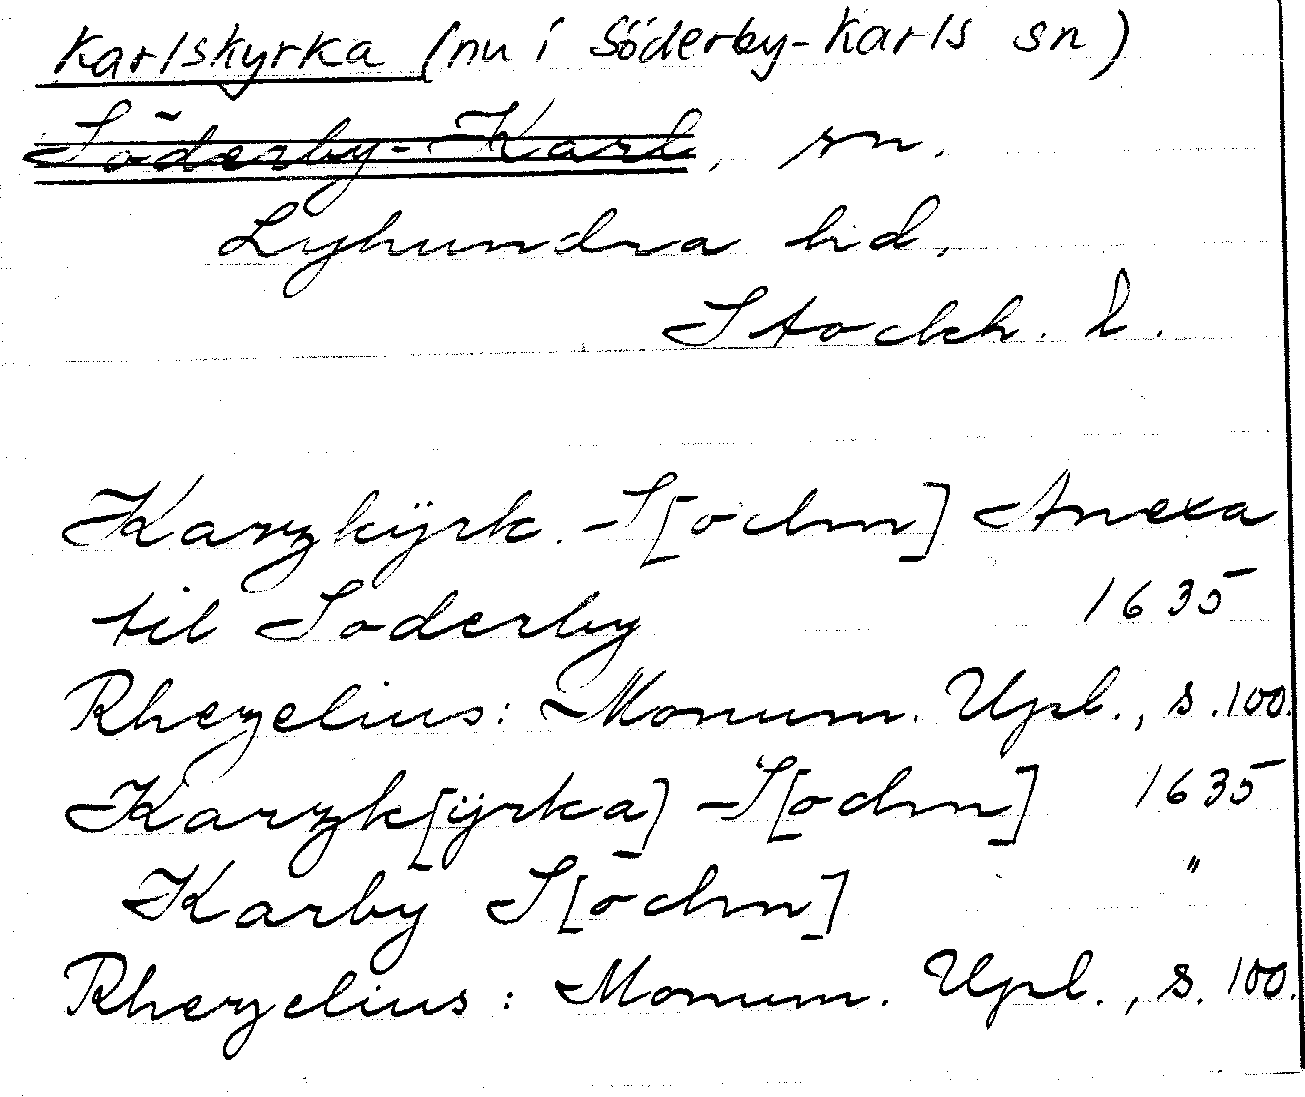 Karlskyrka (nu i Söderby-Karls sn)
Söderby-Karl, sn.
Lyhundra hd.
Stockh. l.
Karzkÿrk. S[ochn] Anexa
til Söderby 1635
Rhezelius: Monum. Upl., s. 100.
Karzk[ÿrka] S[ochn] 1635
Karby S[ochn] "
Rhezelius: Monum. Upl., s. 100.